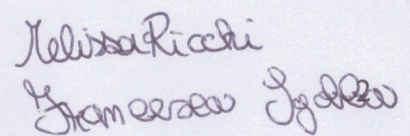 Melissa Ricchi
Francesca